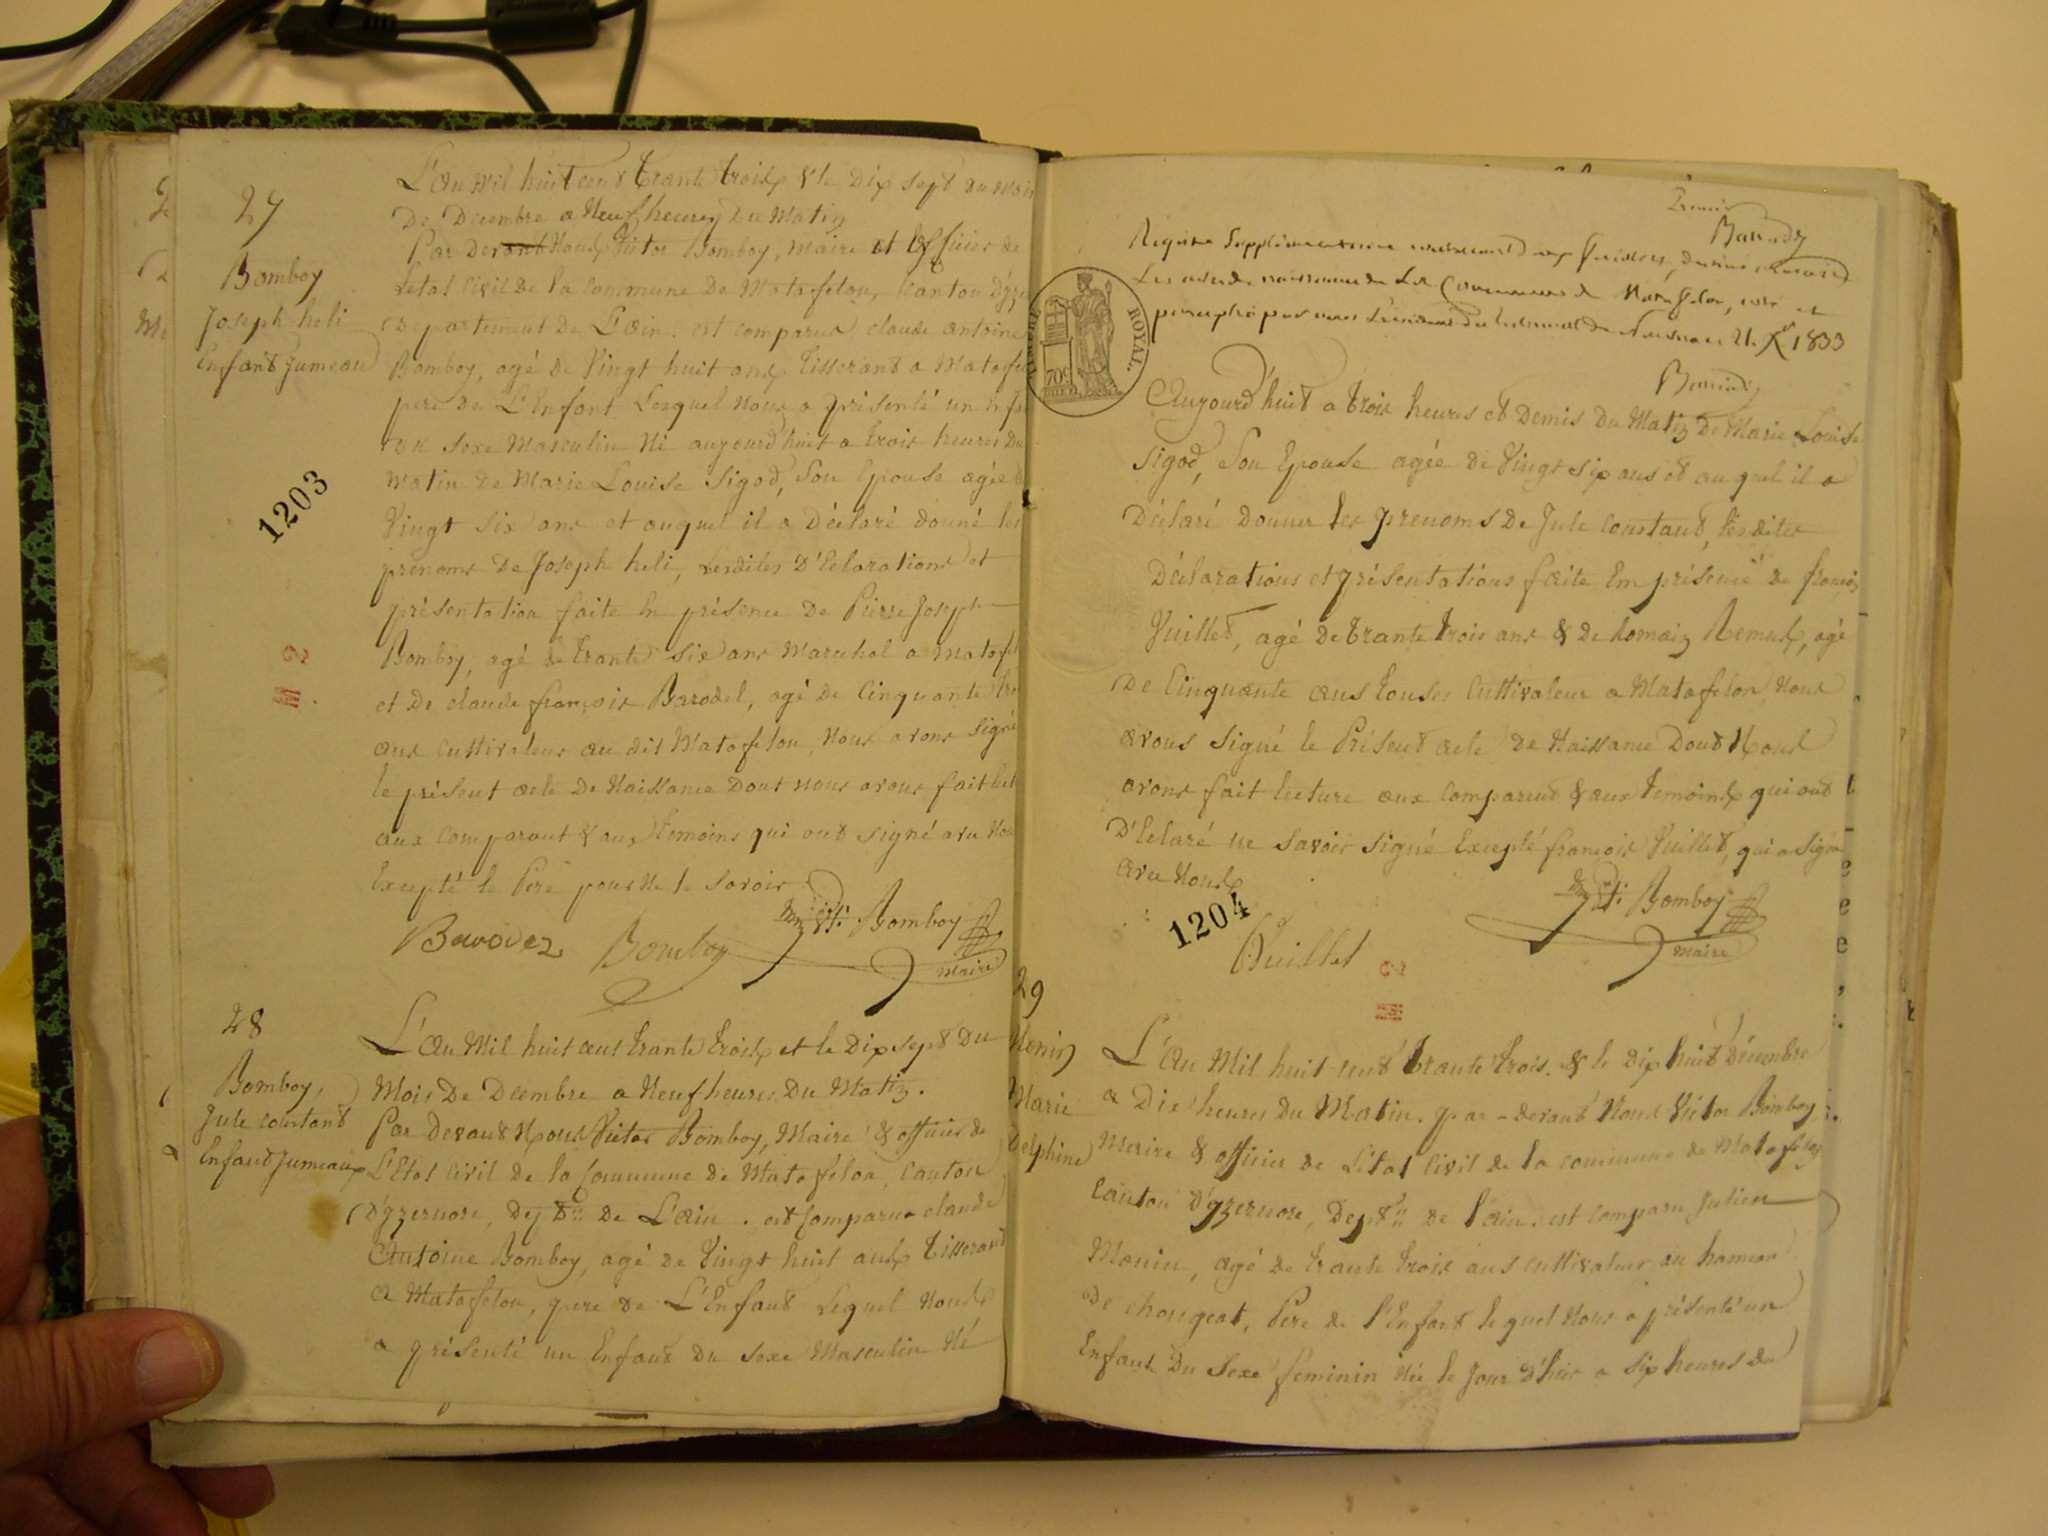 27
Bomboy
Joseph heli
Enfant Jumeau
1203
M 2
L'an Mil huit cent trante trois & le Dix sept du Mois
De Decembre a Neuf heures Du Matin
Par devant Nous Victor Bomboy, Maire et officier de
Letat Civil de la Commune De Matafelon, Canton d'yze
departement de L'ain. est comparus claude antoine
Bomboy, agé de Vingt huit ans Tisserant a Matafe
pere de L'Enfant Lequel Nous a présenté un Enfa
du Sexe Masculin Né aujourd'huit a trois heures Du
matin de Marie Louise Sigod, Son Epouse agée d
Vingt Six ans et auquel il a Déclaré donné les
prénoms De Joseph heli, Lesdites D'Eclarations et
présentation faite En présence De Pierre Joseph
Bomboy, agé de trante six ans Marechal a Matafel
et De claude françois Barodel, agé de Cinquante tro
ans Cultivateur au dit Matafelon, Nous avons Signé
le présent acte De Naissance Dont nous avons fait lect
aux Comparant & aux temoins qui ont signé avec Nou
Excepté le Pere pour Ne le Savoir.
Bomboy
Bomboy
maire
28
Bomboy,
Jule constant
Enfant Jumeaux
L'an Mil huit cent trante trois et le Dix sept Du
Mois De Decembre a Neuf heures Du Matin.
Par Devant Nous Victor Bomboy, Maire & officier de
L'Etat Civil de la Commune de Matafelon, Canton
D'yzernore, Dept de L'ain. est Comparu claude
Antoine Bomboy, agé de Vingt huit ans Tisserand
a Matafelon, pere de L'Enfant Lequel Nous
a présenté un Enfant Du Sexe Masculin Né
Registre Supplémentaire
les actes de naissance de la Commune de Matafelon, coté et
paraphé par nous Président du tribunal de Nantua 1833
TIMBRE ROYAL.
70c
Aujourd'huit a trois heures et Demis Du Matin De Marie Louise
Sigod, Son Epouse agée de Vingt six ans et au quel il a
Déclaré Donner les prenoms De Jule Constant, lesdites
Déclarations et présentations faite En présence de françois
Vuillet, agé De trante trois ans & de Romain Remus, agé
De Cinquante ans touses Cultivateur a Matafelon Nous
avons Signé le Présent acte De Naissance Dont Nous
avons fait lecture aux Comparent & aux temoins qui ont
D'Eclaré ne Savoir Signé Excepté françois Vuillet, qui a Signé
avec Nous
1204
Vuillet
Bomboy
maire
M 2
29
Monin
Marie
Delphine
L'an Mil huit cent trante trois. & le dix huit Décembre
a Dix heures Du Matin. par-devant Nous Victor Bomboy,
Maire & officier de L'état Civil de la commune de Matafelon
Canton D'yzernore, Dept de l'ain. est comparu Julien
Monin, agé de trante trois ans cultivateur au hameau
De chougeat, Pere de l'Enfant lequel Nous a présenté un
Enfant Du Sexe féminin Née le Jour d'hier a Six heures du